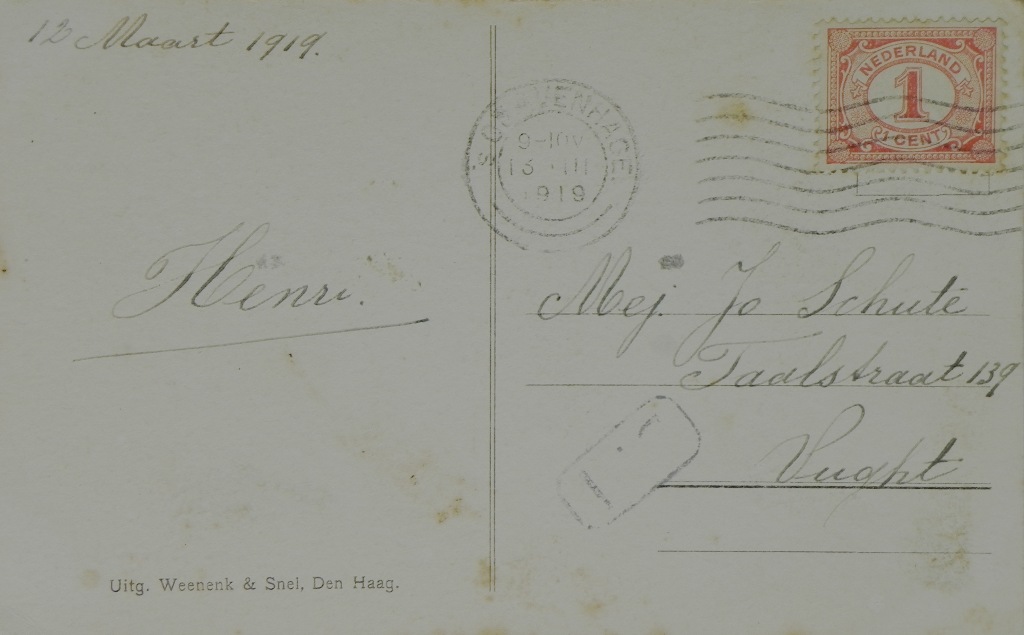 12 Maart 1919.
NEDERLAND
1
1 CENT
'S GRAVENHAGE
9-10V
13 III
1919
Henri.
Mej. Jo Schute
Taalstraat 139
Vught
Uitg. Weenenk & Snel, Den Haag.